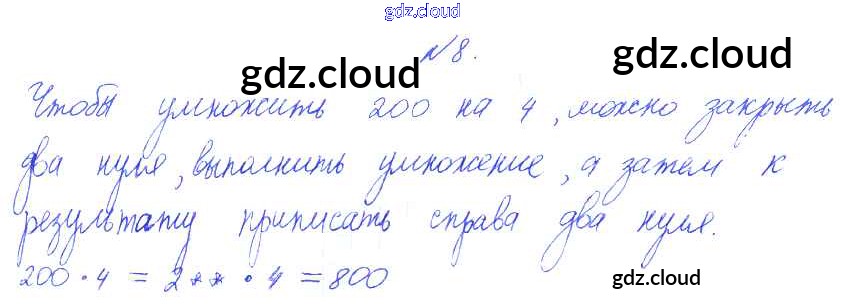 gdz.cloud
№8.
gdz.cloud gdz.cloud
Чтобы умножить 200 на 4, можно закрыть
два нуля, выполнить умножение, а затем к
результату приписать справа два нуля.
200 · 4 = 2** · 4 = 800
gdz.cloud